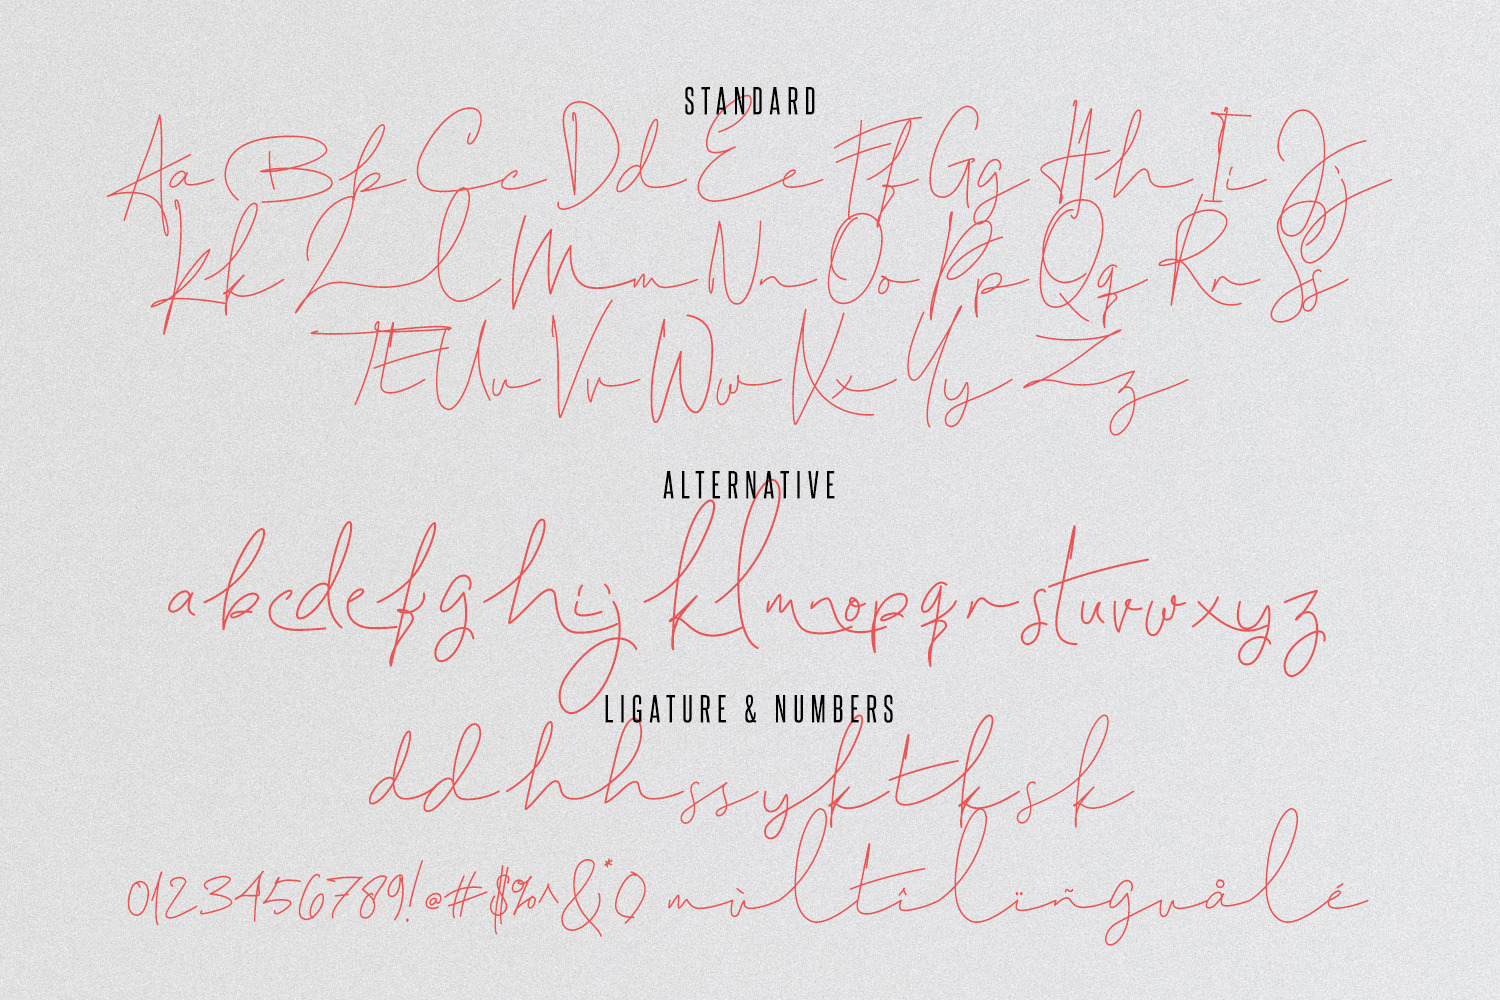 STANDARD
Aa Bb Cc Dd Ee Ff Gg Hh Ii Jj
Kk Ll Mm Nn Oo Pp Qq Rr Ss
Tt Uu Vv Ww Xx Yy Zz
ALTERNATIVE
a b c d e f g h i j k l m n o p q r s t u v w x y z
LIGATURE & NUMBERS
dd hh ss yk tk sk
0123456789!@#$%^&*() mùltîlïñgvålé